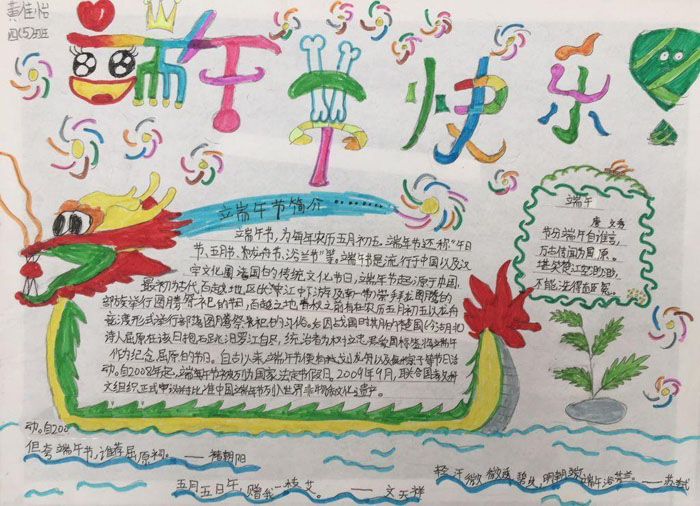 黄佳怡
四(5)班
端午节快乐
端午节简介…………
端午节,为每年农历五月初五。端午节还称“午日
节、五月节、
”等,端午节是流行于中国以及汉
字文化圈诸国的传统文化节日,端午节起源于中国,
最初为古代百越地区(长江中下游及南一带)崇拜龙图腾的
部族举行图腾祭祀的节日,百越之地
在农历五月初五以龙舟
竞渡形式举行部落图腾祭祀的习俗。后因战国时期的楚国(今湖北)
诗人屈原在该日抱石跳汨罗江自尽,统治者为树立忠君爱国标签将端午
作为纪念屈原的节日。自古以来端午节便有划龙舟以及
等节日活
动。自2008年起,端午节被列为国家法定节假日。2009年9月,联合国教科
文组织正式审议并批准中国端午节列入世界非物质文化遗产。
端午
唐 文秀
节分端午自谁言,
万古传闻为屈原。
堪笑楚江空渺渺,
不能洗得直臣冤。
动。自200
但夸端午节,谁荐屈原祠。——褚朝阳
五月五日午,赠我一枝艾。——文天祥
轻汗微微透碧纨,明朝端午浴芳兰。——苏轼